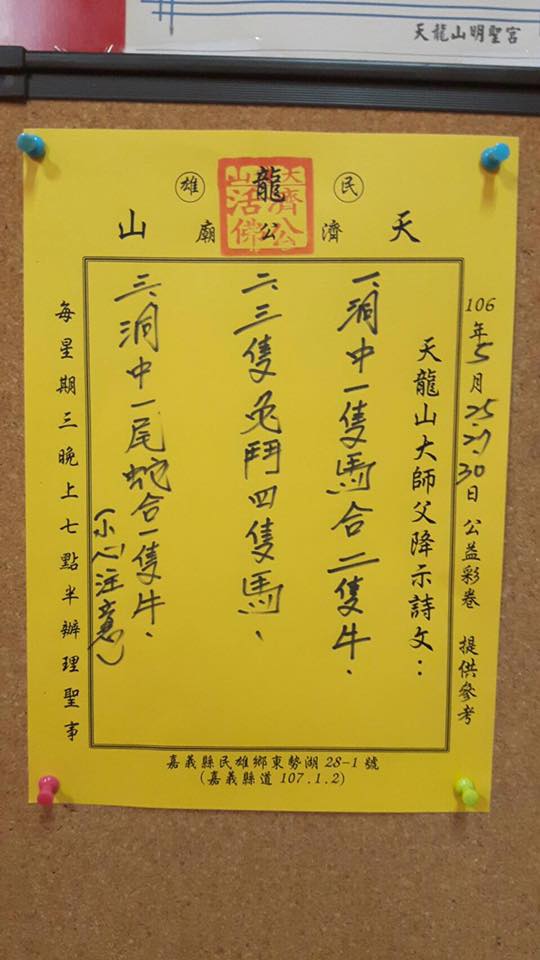 天龍山明聖宮
民 龍 雄
天濟公廟山
天濟公
山活佛
106年5月25.27.30日 公益彩卷 提供參考
天龍山大師父降示詩文：
一、洞中一隻馬合二隻牛、
二、三隻兔鬥四隻馬、
三、洞中一尾蛇合一隻牛、
(小心注意)
每星期三晚上七點半辦理聖事
嘉義縣民雄鄉東勢湖28-1號
(嘉義縣道107.1.2)